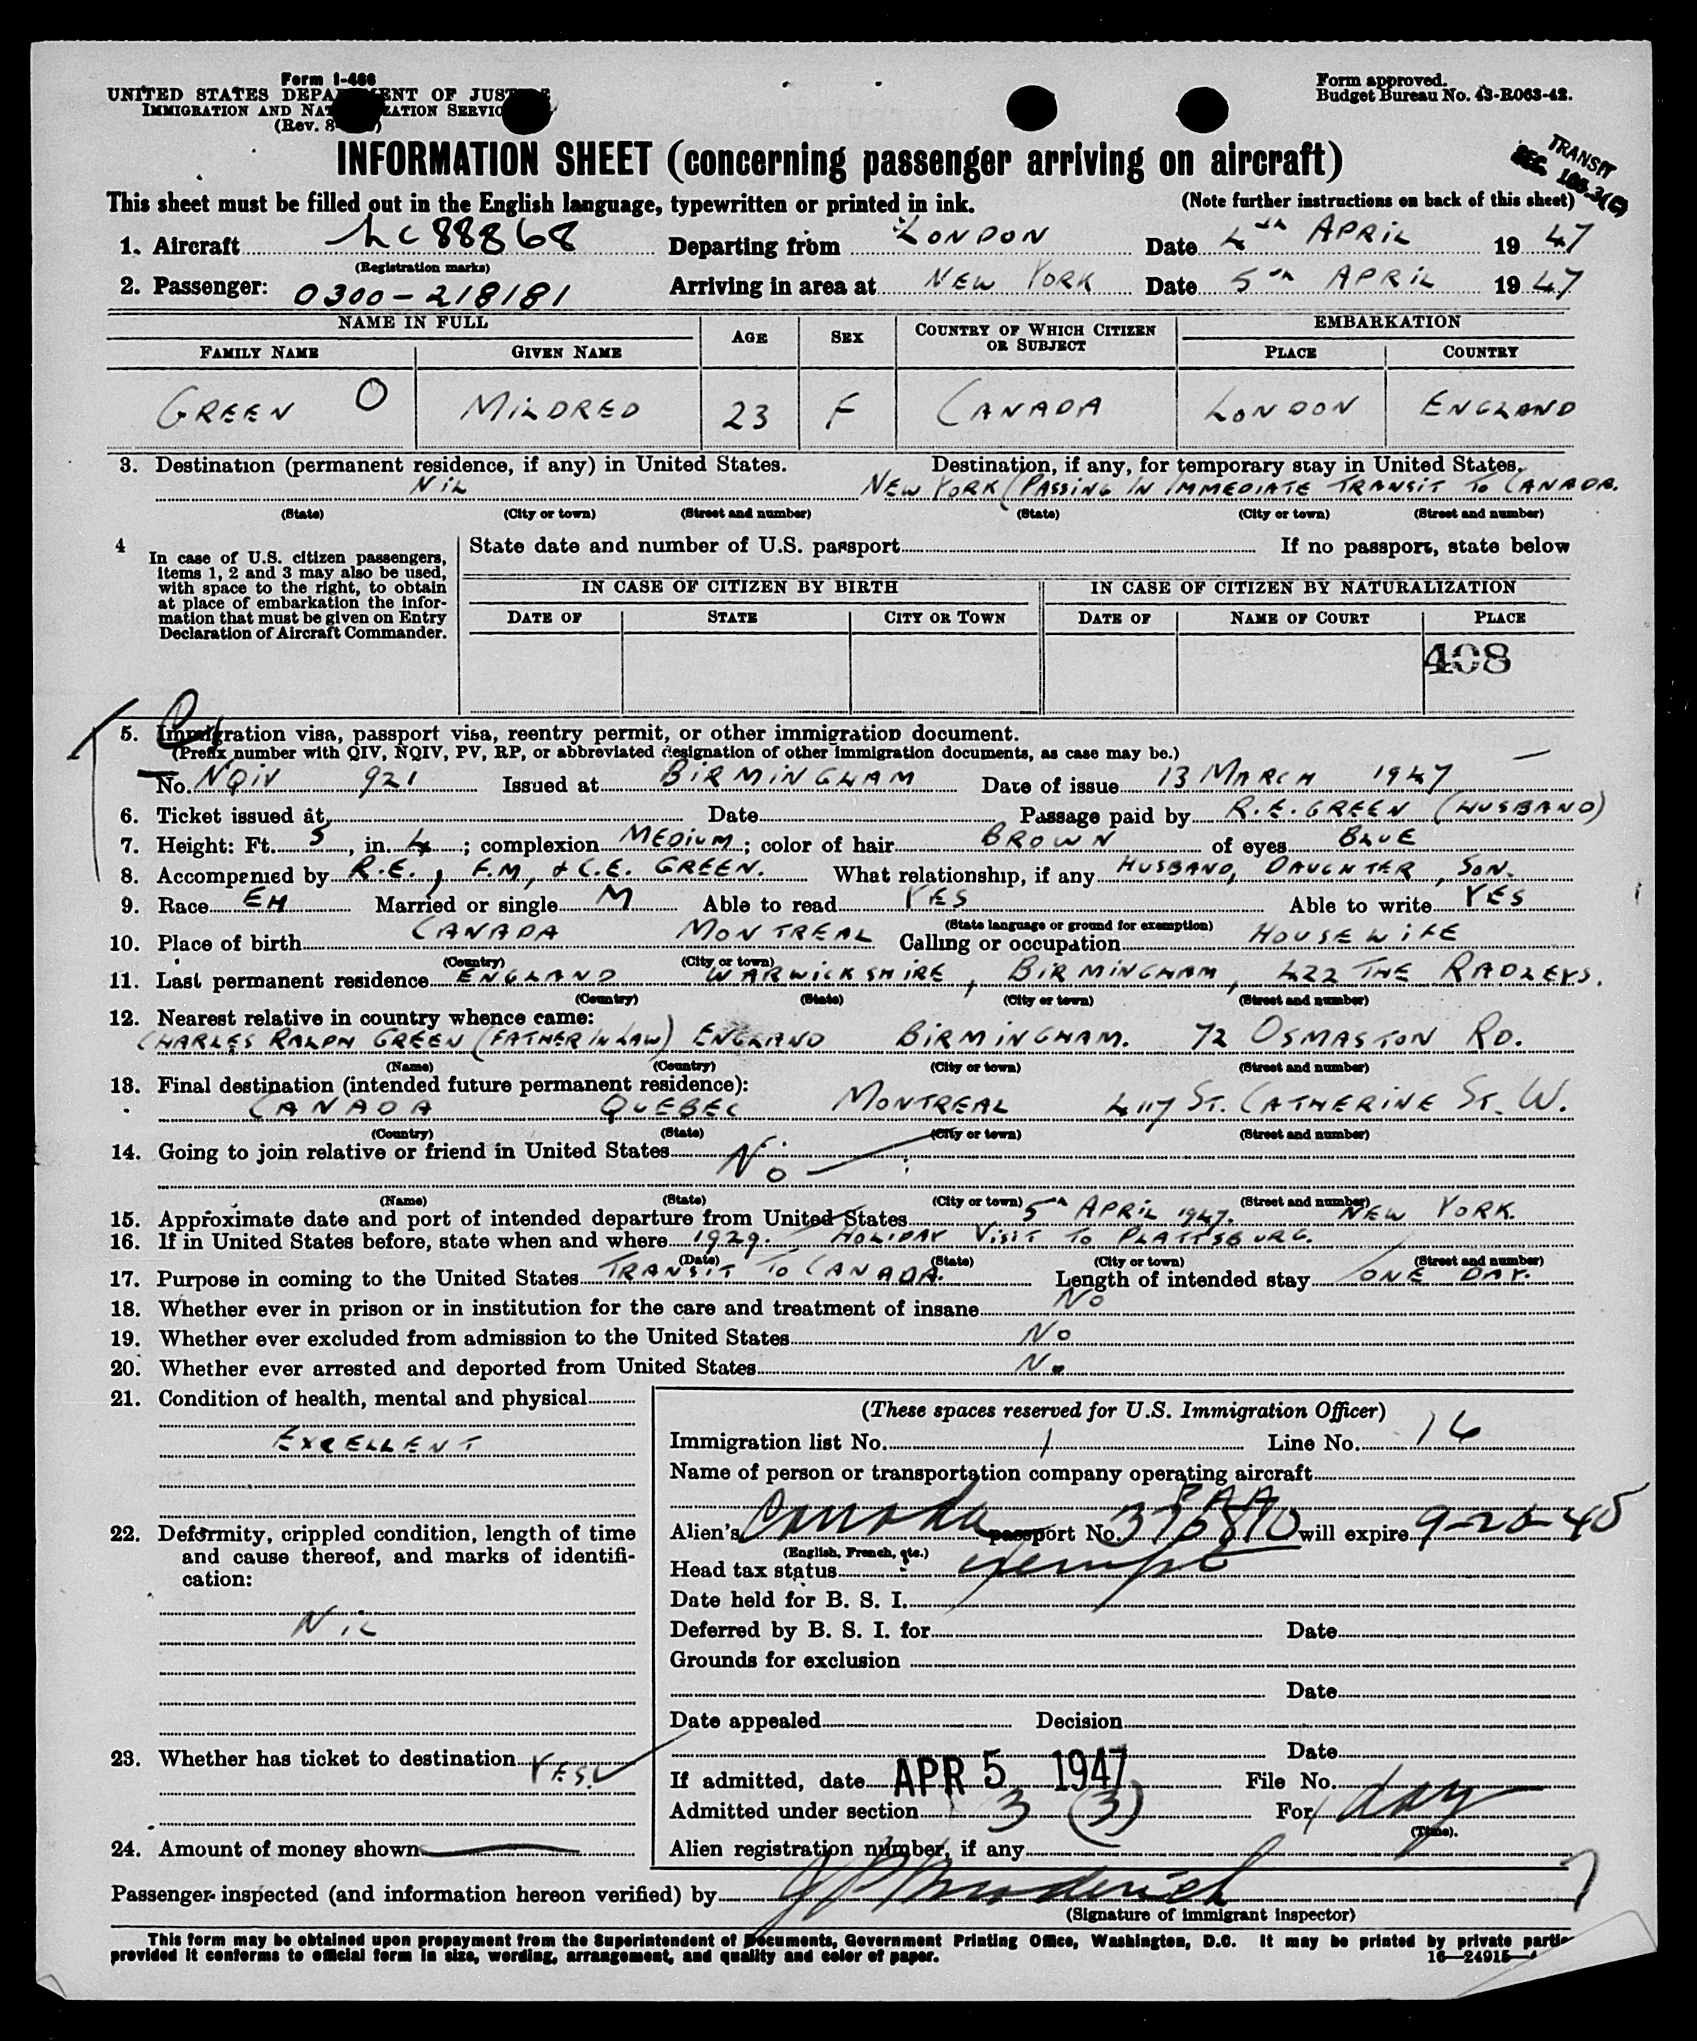 Form I-466
UNITED STATES DEPARTMENT OF JUSTICE
IMMIGRATION AND NATURALIZATION SERVICE
(Rev. 8
Form approved.
Budget Bureau No. 43-R063-42.
TRANSIT
SEC.
INFORMATION SHEET (concerning passenger arriving on aircraft)
This sheet must be filled out in the English language, typewritten or printed in ink. (Note further instructions on back of this sheet)
1. Aircraft 88868 Departing from LONDON Date 4TH APRIL 1947
(Registration marks)
2. Passenger: 0300-218181 Arriving in area at NEW YORK Date 5TH APRIL 1947
NAME IN FULL AGE SEX COUNTRY OF WHICH CITIZEN OR SUBJECT EMBARKATION
FAMILY NAME GIVEN NAME PLACE COUNTRY
GREEN O MILDRED 23 F CANADA LONDON ENGLAND
3. Destination (permanent residence, if any) in United States. Destination, if any, for temporary stay in United States.
NIL NEW YORK (PASSING IN IMMEDIATE TRANSIT TO CANADA.
(State) (City or town) (Street and number) (State) (City or town) (Street and number)
4 In case of U.S. citizen passengers, items 1, 2 and 3 may also be used, with space to the right, to obtain at place of embarkation the information that must be given on Entry Declaration of Aircraft Commander.
State date and number of U.S. passport If no passport, state below
IN CASE OF CITIZEN BY BIRTH IN CASE OF CITIZEN BY NATURALIZATION
DATE OF STATE CITY OR TOWN DATE OF NAME OF COURT PLACE
408
5. Immigration visa, passport visa, reentry permit, or other immigration document.
(Prefix number with QIV, NQIV, PV, RP, or abbreviated designation of other immigration documents, as case may be.)
No. NQIV 921 Issued at BIRMINGHAM Date of issue 13 MARCH 1947
6. Ticket issued at Date Passage paid by R.E. GREEN (HUSBAND)
7. Height: Ft. 5, in. 4; complexion MEDIUM; color of hair BROWN of eyes BLUE
8. Accompanied by R.E., F.M, & C.E. GREEN. What relationship, if any HUSBAND, DAUGHTER, SON.
9. Race EH Married or single M Able to read YES Able to write YES
(State language or ground for exemption)
10. Place of birth CANADA MONTREAL Calling or occupation HOUSEWIFE
(Country) (City or town)
11. Last permanent residence ENGLAND WARWICKSHIRE, BIRMINGHAM, 422 THE RADLEYS.
(Country) (State) (City or town) (Street and number)
12. Nearest relative in country whence came:
CHARLES RALPH GREEN (FATHER IN LAW) ENGLAND BIRMINGHAM. 72 OSMASTON RD.
(Name) (Country) (City or town) (Street and number)
13. Final destination (intended future permanent residence):
CANADA QUEBEC MONTREAL 4117 ST. CATHERINE ST. W.
(Country) (State) (City or town) (Street and number)
14. Going to join relative or friend in United States NO
(Name) (State) (City or town) (Street and number)
15. Approximate date and port of intended departure from United States 5TH APRIL 1947. NEW YORK.
16. If in United States before, state when and where 1929. HOLIDAY VISIT TO PLATTSBURG.
(Date) (State) (City or town) (Street and number)
17. Purpose in coming to the United States TRANSIT TO CANADA. Length of intended stay ONE DAY.
18. Whether ever in prison or in institution for the care and treatment of insane NO
19. Whether ever excluded from admission to the United States NO
20. Whether ever arrested and deported from United States NO
21. Condition of health, mental and physical
EXCELLENT
22. Deformity, crippled condition, length of time and cause thereof, and marks of identification:
NIL
23. Whether has ticket to destination YES
24. Amount of money shown
(These spaces reserved for U.S. Immigration Officer)
Immigration list No. 1 Line No. 16
Name of person or transportation company operating aircraft
PAA
Alien's Canada passport No. will expire
(English, French, etc.)
Head tax status exempt
Date held for B. S. I.
Deferred by B. S. I. for Date
Grounds for exclusion
Date
Date appealed Decision
Date
If admitted, date APR 5 1947 File No.
Admitted under section 3 (3) For 1 day
(Time).
Alien registration number, if any
Passenger inspected (and information hereon verified) by
(Signature of immigrant inspector)
This form may be obtained upon prepayment from the Superintendent of Documents, Government Printing Office, Washington, D.C. It may be printed by private parties
provided it conforms to official form in size, wording, arrangement, and quality and color of paper. 16—24915